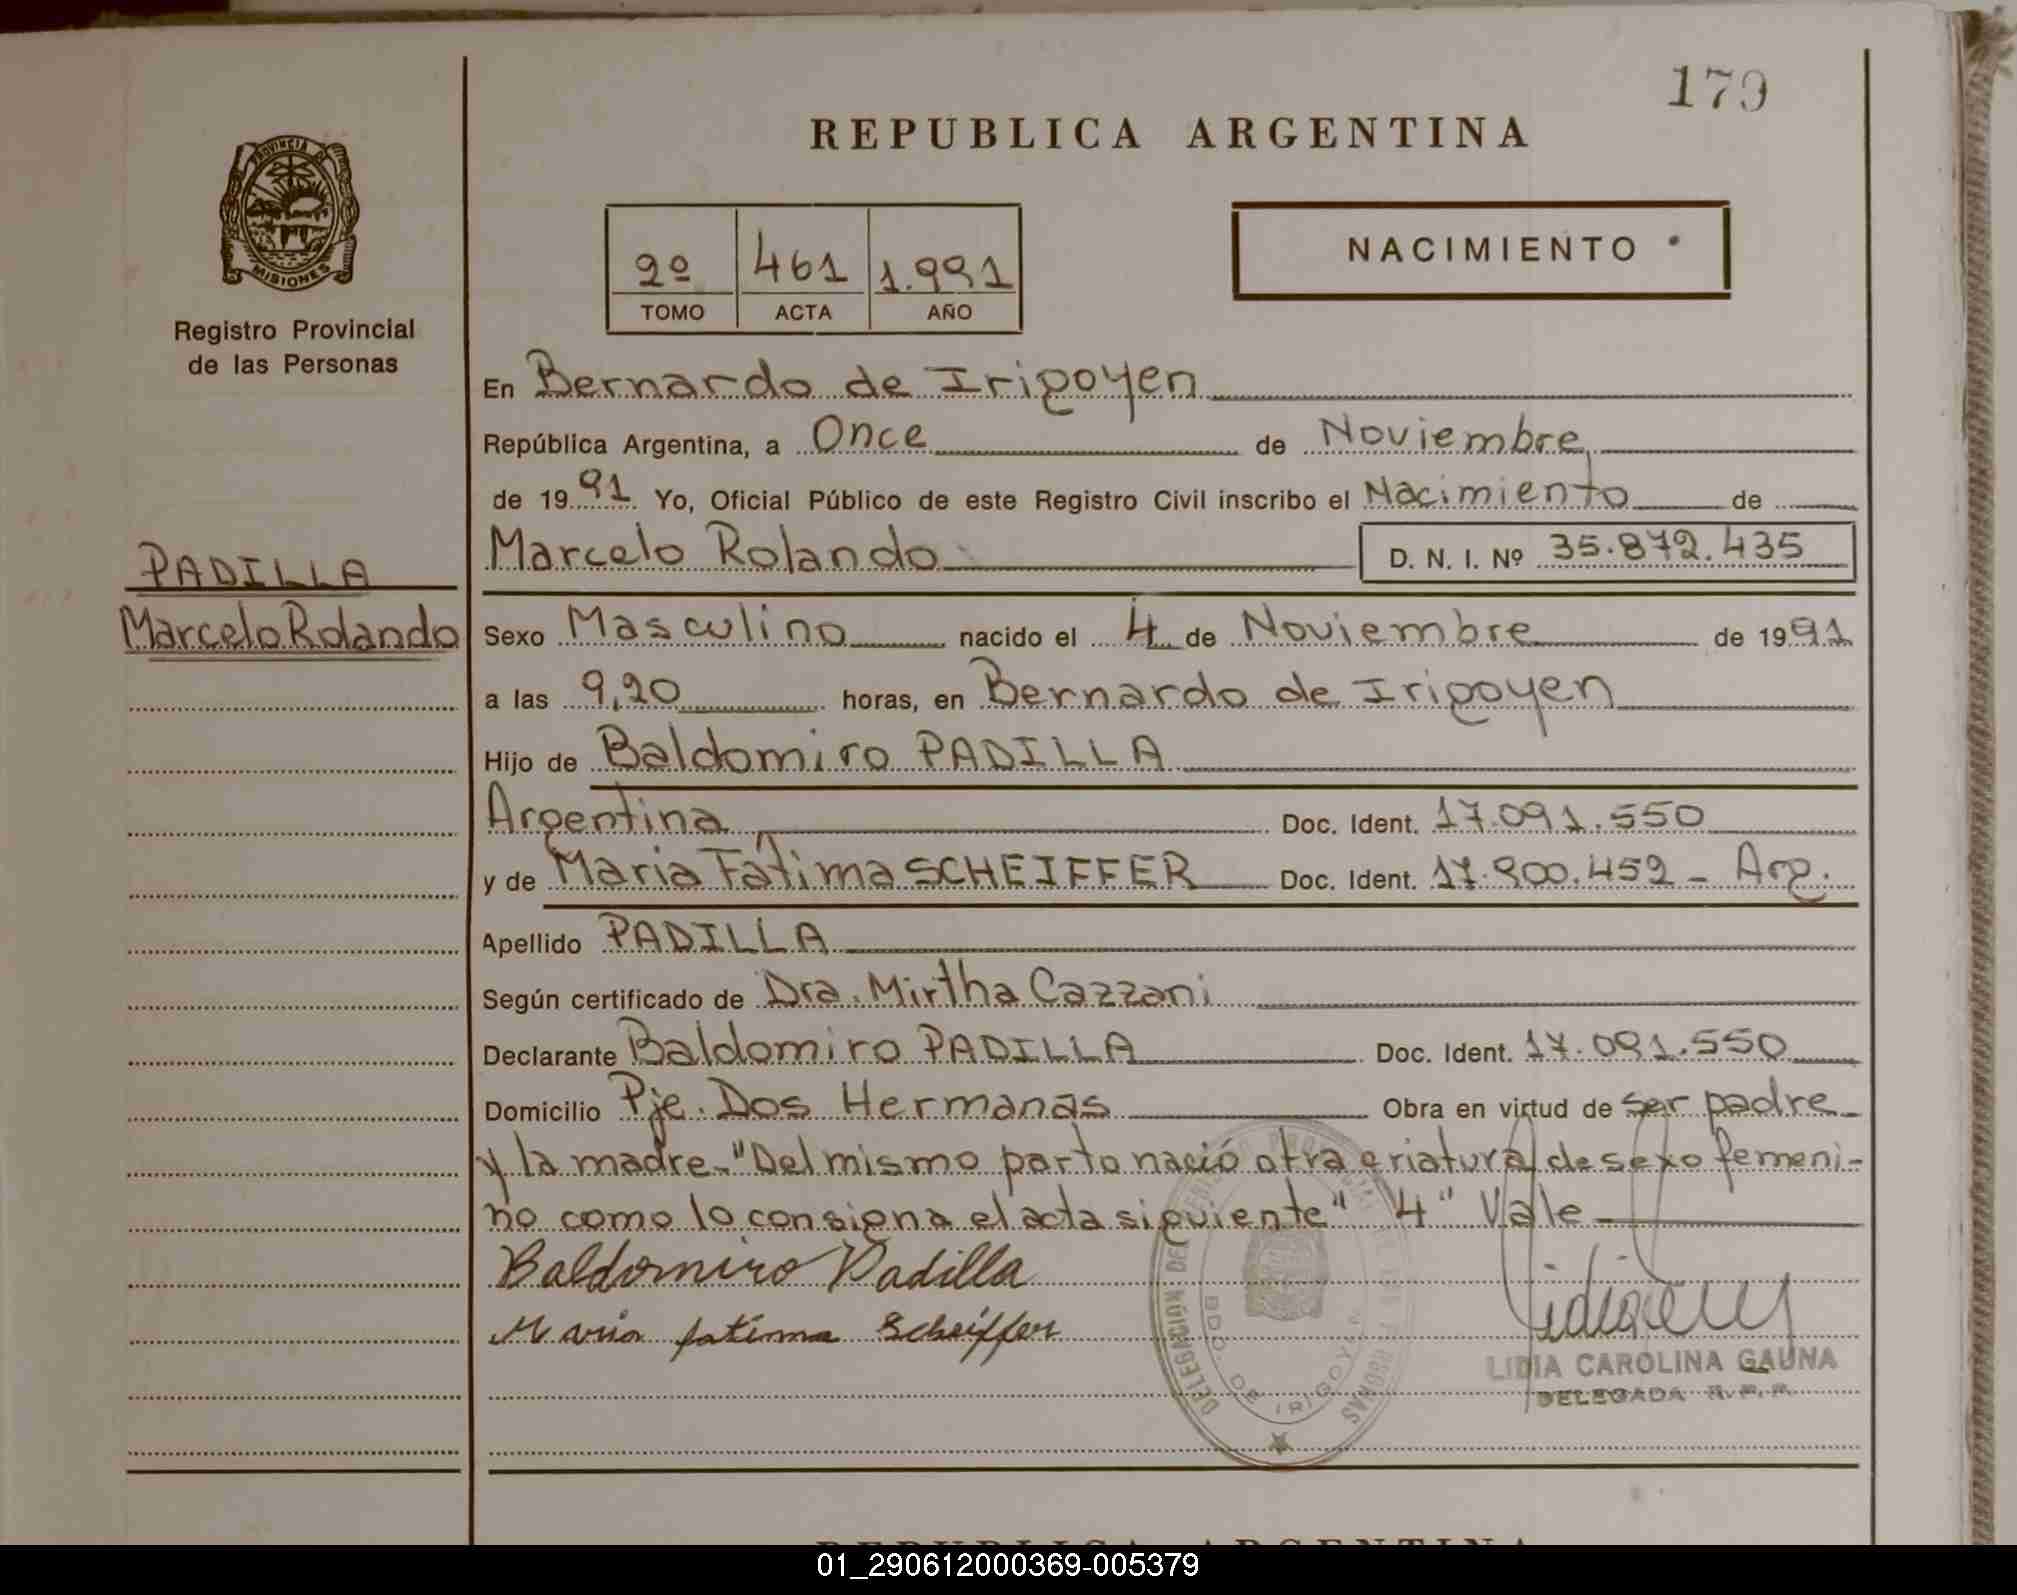 179
REPUBLICA ARGENTINA
PROVINCIA DE
MISIONES
Registro Provincial
de las Personas
2º 461 1.991
TOMO ACTA AÑO
NACIMIENTO
En Bernardo de Irigoyen
República Argentina, a Once de Noviembre
de 1991 Yo, Oficial Público de este Registro Civil inscribo el Nacimiento de
PADILLA
Marcelo Rolando
Marcelo Rolando D. N. I. Nº 35.872.435
Sexo Masculino nacido el 4 de Noviembre de 1991
a las 9,20 horas, en Bernardo de Irigoyen
Hijo de Baldomiro PADILLA
Argentina Doc. Ident. 17.091.550
y de Maria Fátima SCHEIFFER Doc. Ident. 17.900.452 - Arg.
Apellido PADILLA
Según certificado de Dra. Mirtha Cazzani
Declarante Baldomiro PADILLA Doc. Ident. 17.091.550
Domicilio Pje. Dos Hermanas Obra en virtud de ser padre
y la madre. "Del mismo parto nació otra criatura de sexo femeni-
no como lo consigna el acta siguiente" "4" Vale
Baldomiro Padilla
Maria fatima Scheiffer
DELEGACIÓN DEL REGISTRO PROVINCIAL DE LAS PERSONAS
BDO. DE IRIGOYEN
LIDIA CAROLINA GAUNA
DELEGADA R. P. P.
REPUBLICA ARGENTINA
01_290612000369-005379